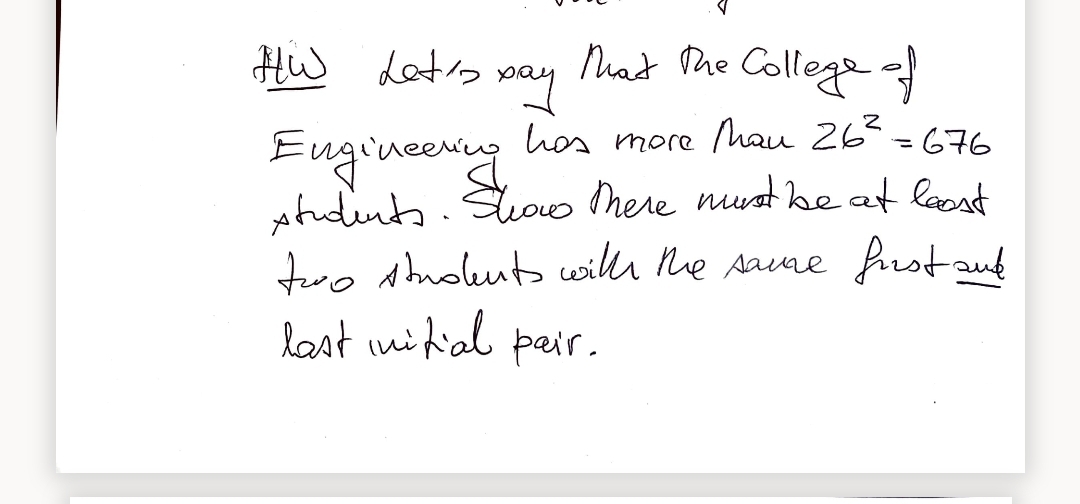 HW Let's say that the College of
Engineering has more than 26² = 676
students. Show there must be at least
two students with the same first and
last initial pair.